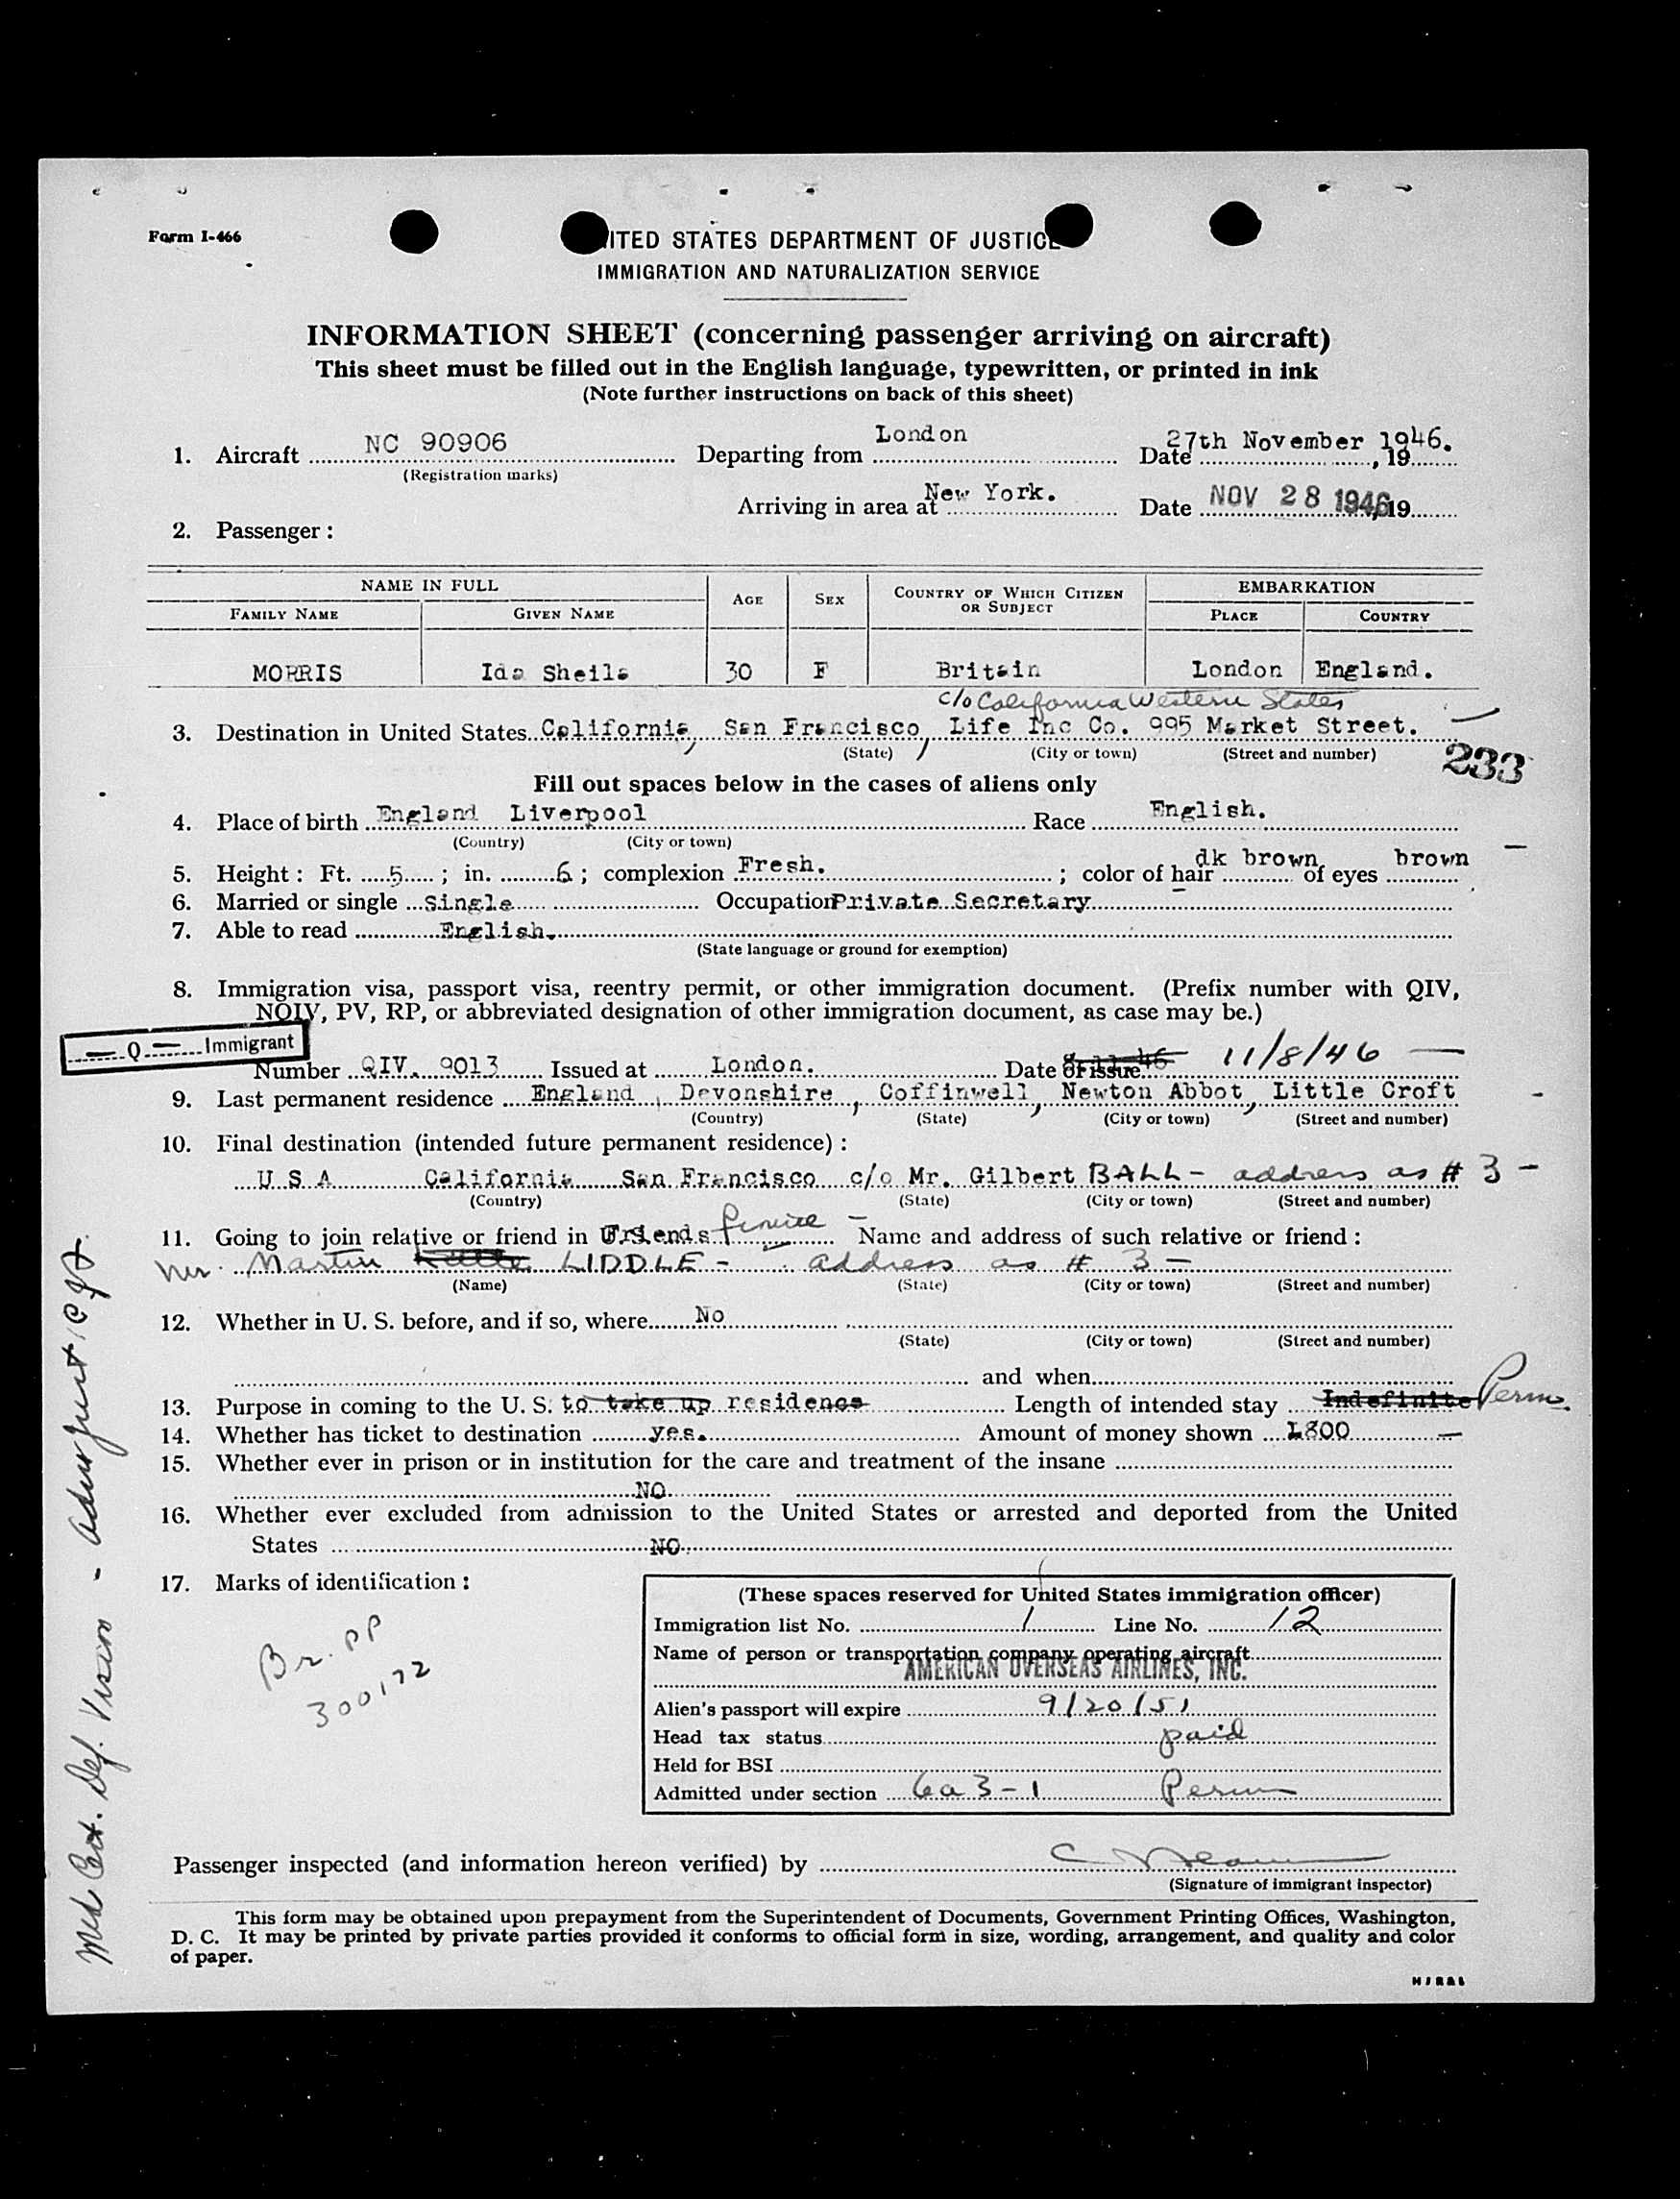 Form I-466
UNITED STATES DEPARTMENT OF JUSTICE
IMMIGRATION AND NATURALIZATION SERVICE
INFORMATION SHEET (concerning passenger arriving on aircraft)
This sheet must be filled out in the English language, typewritten, or printed in ink
(Note further instructions on back of this sheet)
1. Aircraft NC 90906 Departing from London Date 27th November 1946. , 19
(Registration marks)
Arriving in area at New York. Date NOV 28 1946 , 19
2. Passenger:
NAME IN FULL AGE SEX COUNTRY OF WHICH CITIZEN OR SUBJECT EMBARKATION
FAMILY NAME GIVEN NAME PLACE COUNTRY
MORRIS Ida Sheila 30 F Britain London England.
c/o California Western States
3. Destination in United States California, San Francisco, Life Inc Co. 995 Market Street.
(State) (City or town) (Street and number)
233
Fill out spaces below in the cases of aliens only
4. Place of birth England Liverpool Race English.
(Country) (City or town)
5. Height: Ft. 5; in. 6; complexion Fresh.; color of hair dk brown of eyes brown
6. Married or single Single Occupation Private Secretary
7. Able to read English.
(State language or ground for exemption)
8. Immigration visa, passport visa, reentry permit, or other immigration document. (Prefix number with QIV,
NQIV, PV, RP, or abbreviated designation of other immigration document, as case may be.)
Q Immigrant
Number QIV. 9013 Issued at London. Date of issue 11/8/46
9. Last permanent residence England, Devonshire, Coffinwell, Newton Abbot, Little Croft
(Country) (State) (City or town) (Street and number)
10. Final destination (intended future permanent residence):
U S A California San Francisco c/o Mr. Gilbert BALL - address as # 3 -
(Country) (State) (City or town) (Street and number)
11. Going to join relative or friend in U. S. Friends Name and address of such relative or friend:
Mr. Martin LIDDLE - address as # 3 -
(Name) (State) (City or town) (Street and number)
12. Whether in U. S. before, and if so, where No
(State) (City or town) (Street and number)
and when
13. Purpose in coming to the U. S. to take up residence Length of intended stay Indefinite Perm.
14. Whether has ticket to destination yes. Amount of money shown £800
15. Whether ever in prison or in institution for the care and treatment of the insane
NO
16. Whether ever excluded from admission to the United States or arrested and deported from the United
States NO.
17. Marks of identification:
Br. PP
300172
(These spaces reserved for United States immigration officer)
Immigration list No. 1 Line No. 12
Name of person or transportation company operating aircraft
AMERICAN OVERSEAS AIRLINES, INC.
Alien's passport will expire 9/20/51
Head tax status paid
Held for BSI
Admitted under section 6a3-1 Perm
Passenger inspected (and information hereon verified) by
(Signature of immigrant inspector)
This form may be obtained upon prepayment from the Superintendent of Documents, Government Printing Offices, Washington,
D. C. It may be printed by private parties provided it conforms to official form in size, wording, arrangement, and quality and color
of paper.
Med Cert. Def. Vision -